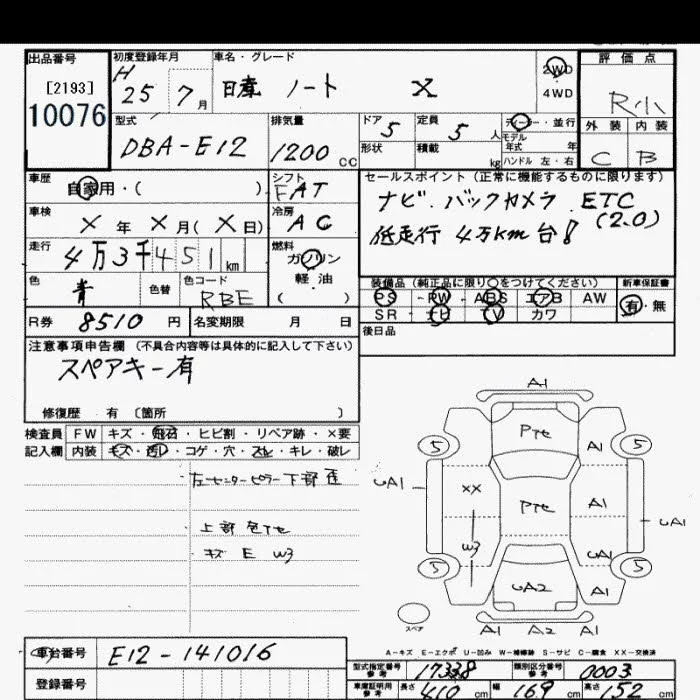 出品番号
[2193]
10076
初度登録年月
H 25 7 月
車名・グレード
日産 ノート X
2WD
4WD
評価点
R小
外装 内装
C B
型式
DBA-E12
排気量
1200 CC
ドア 5
定員 5 人
形状
積載 kg
ディーラー・並行
モデル
年式 年
ハンドル 左・右
車歴
自家用・( )
シフト
FAT
車検
X 年 X 月( X 日)
冷房
AC
走行
4万3千451km
燃料
ガソリン
軽・油
( )
色
青
色替
色コード
RBE
セールスポイント(正常に機能するものに限ります)
ナビ.バックカメラ ETC
(2.0)
低走行 4万km台!
装備品(純正品に限り○をつけてください)
新車保証書
PS・PW・ABS エアB AW
SR・ナビ TV カワ
有・無
R券 8510 円
名変期限 月 日
後日品
注意事項申告欄(不具合内容等は具体的に記入して下さい)
スペアキー有
修復歴 有 〔箇所 〕
検査員
記入欄
FW キズ・飛石・ヒビ割・リペア跡・×要
内装 キズ・汚レ・コゲ・穴・スレ・キレ・破レ
左センターピラー下部歪
上部色Tte
キズ E W3
A1
Pte
5
5
A1
UA1
XX
Pte
A1
UA1
W3
UA1
5
5
UA2
A1
スペア
A1 A2 A1
A-キズ E-エクボ U-凹み W-補修跡 S-サビ C-腐食 XX-交換済
車台番号
E12-141016
登録番号
型式指定番号
参考
17338
類別区分番号
参考
0003
車庫証明用
参考
長さ 410 cm
幅 169 cm
高さ 152 cm